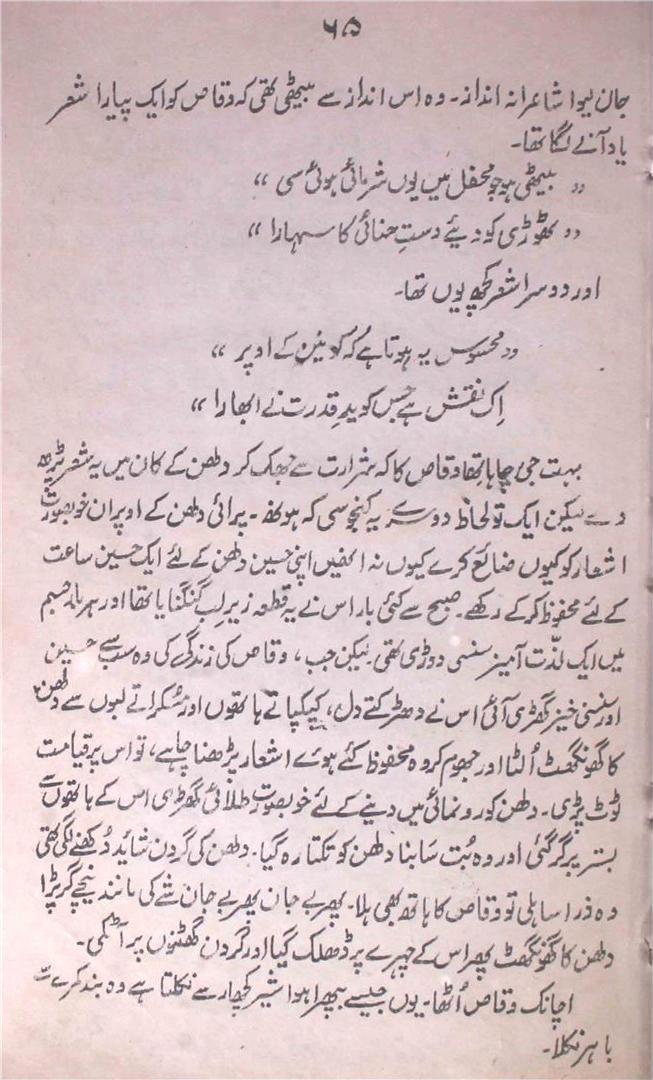 ۶۵
جان لیوا شاعرانہ انداز۔ وہ اس انداز سے بیٹھی تھی کہ وقاص کو ایک پیارا شعر
یاد آنے لگا تھا۔
” بیٹھی ہو جو محفل میں یوں شرمائی ہوئی سی “
” ٹھوڑی کو دیئے دستِ حنائی کا سہارا “
اور دوسرا شعر کچھ یوں تھا۔
” محسوس یہ ہوتا ہے کہ کونین کے اوپر “
اِک نقش ہے جس کو یدِ قدرت نے ابھارا “
بہت جی چاہا تھا وقاص کا کہ شرارت سے جھک کر دلھن کے کان میں یہ شعر پڑھ
دے لیکن ایک تو لحاظ دوسرے یہ کنجوسی کہ ہو نھہ۔ پرائی دلھن کے اوپر ان خوبصورت
اشعار کو کیوں ضائع کرے کیوں نہ انھیں اپنی حسین دلھن کے لئے ایک حسین ساعت
کے لئے محفوظ کر کے رکھے۔ صبح سے کئی بار اس نے یہ قطعہ زیر لب گنگنایا تھا اور ہر بار جسم
میں ایک لذت آمیز سنسنی دوڑی تھی۔ لیکن جب، وقاص کی زندگی کی وہ سب سے حسین
اور سنسنی خیز گھڑی آئی اس نے دھڑکتے دل، کپکپاتے ہاتھوں اور مسکراتے لبوں سے دلھن
کا گونگھٹ اُلٹا اور جھوم کر وہ محفوظ کئے ہوے اشعار پڑھنا چاہے، تو اس پر قیامت
ٹوٹ پڑی۔ دلھن کو رونمائی میں دینے کے لئے خوبصورت طلائی گھڑی اس کے ہاتھوں سے
بستر پر گر گئی اور وہ بُت سا بنا دلھن کو تکتا رہ گیا۔ دلھن کی گردن شائد دُکھنے لگی تھی
وہ ذرا سا ہلی تو وقاص کا ہاتھ بھی ہلا۔ پھر بے جان پھر بے جان شے کی مانند نیچے گر پڑا
دلھن کا گونگھٹ پھر اس کے چہرے پر ڈھلک گیا اور گردن گھٹنوں پر آ ٹکی۔
اچانک وقاص اُٹھا۔ یوں جیسے بپھرا ہوا شیر کچھار سے نکلتا ہے وہ بند کمرے سے
باہر نکلا۔